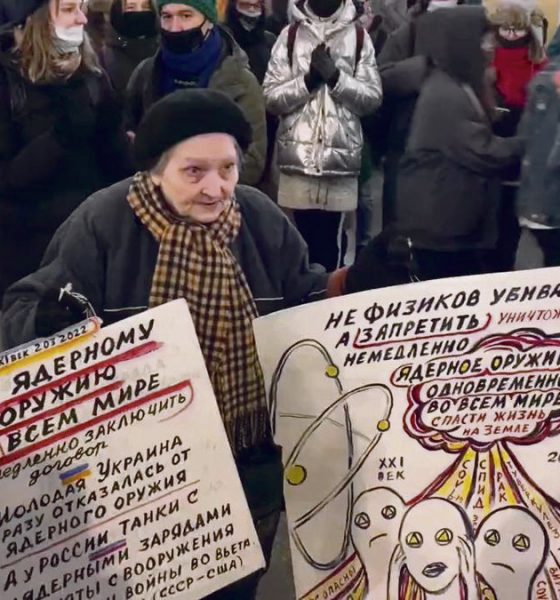 ВЕК 2 03 2022
ЯДЕРНОМУ
ОРУЖИЮ
ВСЕМ МИРЕ
заключить
договор
МОЛОДАЯ УКРАИНА
РАЗУ ОТКАЗАЛАСЬ ОТ
ЯДЕРНОГО ОРУЖИЯ
А У РОССИИ ТАНКИ С
ЯДЕРНЫМИ ЗАРЯДАМИ
С ВООРУЖЕНИЯ
И ВОЙНЫ ВО ВЬЕТА
(СССР-США)
НЕ ФИЗИКОВ УБИВА
А ЗАПРЕТИТЬ УНИЧТОЖ
НЕМЕДЛЕННО
ЯДЕРНОЕ ОРУЖИ
ОДНОВРЕМЕННО
ВО ВСЕМ МИРЕ
СПАСТИ ЖИЗНЬ
НА ЗЕМЛЕ
XXI
ВЕК
СПИД
РАК